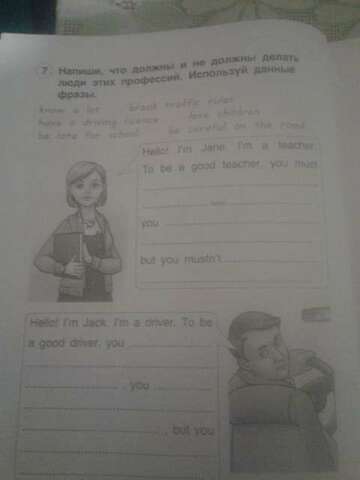 7 Напиши, что должны и не должны делать
люди этих профессий. Используй данные
фразы.
know a lot break traffic rules
have a driving licence love children
be late for school be careful on the road
Hello! I'm Jane. I'm a teacher.
To be a good teacher, you must
you
but you mustn't
Hello! I'm Jack. I'm a driver. To be
a good driver, you
, you
, but you